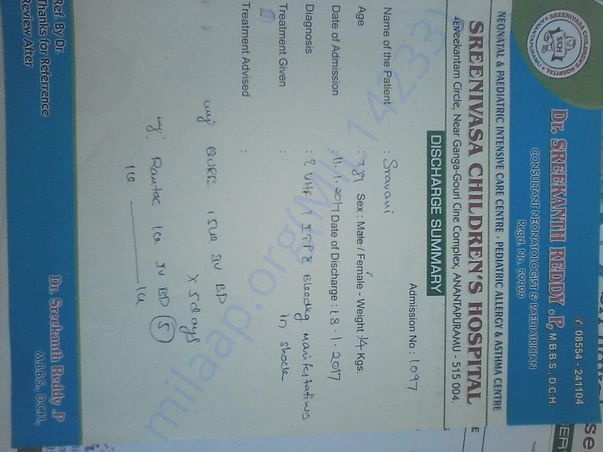 SREENIVASA CHILDREN'S HOSPITAL
SCH
✆ 08554 - 241104
Dr. SREEKANTH REDDY .P, M.B.B.S., D.C.H
CONSULTANT NEONATOLOGIST & PAEDIATRICIAN
Regd. No. 59999
NEONATAL & PAEDIATRIC INTENSIVE CARE CENTRE - PEDIATRIC ALLERGY & ASTHMA CENTRE
SREENIVASA CHILDREN'S HOSPITAL
Circle, Near Ganga-Gouri Cine Complex, ANANTAPURAMU - 515 004.
DISCHARGE SUMMARY
Admission No : 1097
Name of the Patient : Sravani
Age : Sex : Male / Female - Weight : 14 Kgs.
Date of Admission : 11.1.2017 Date of Discharge : 18.1.2017
Diagnosis : ? VHF Bleeding manifestations
in shock
Treatment Given :
Treatment Advised :
IV BD
X 5 days
Inj. Rantac IV BD (5)
Ref. By Dr.
Thanks for Referrence
Review After
Dr. Sreekanth Reddy .P
M.B.B.S., D.C.H.,
milaap.org(MI: 14233)